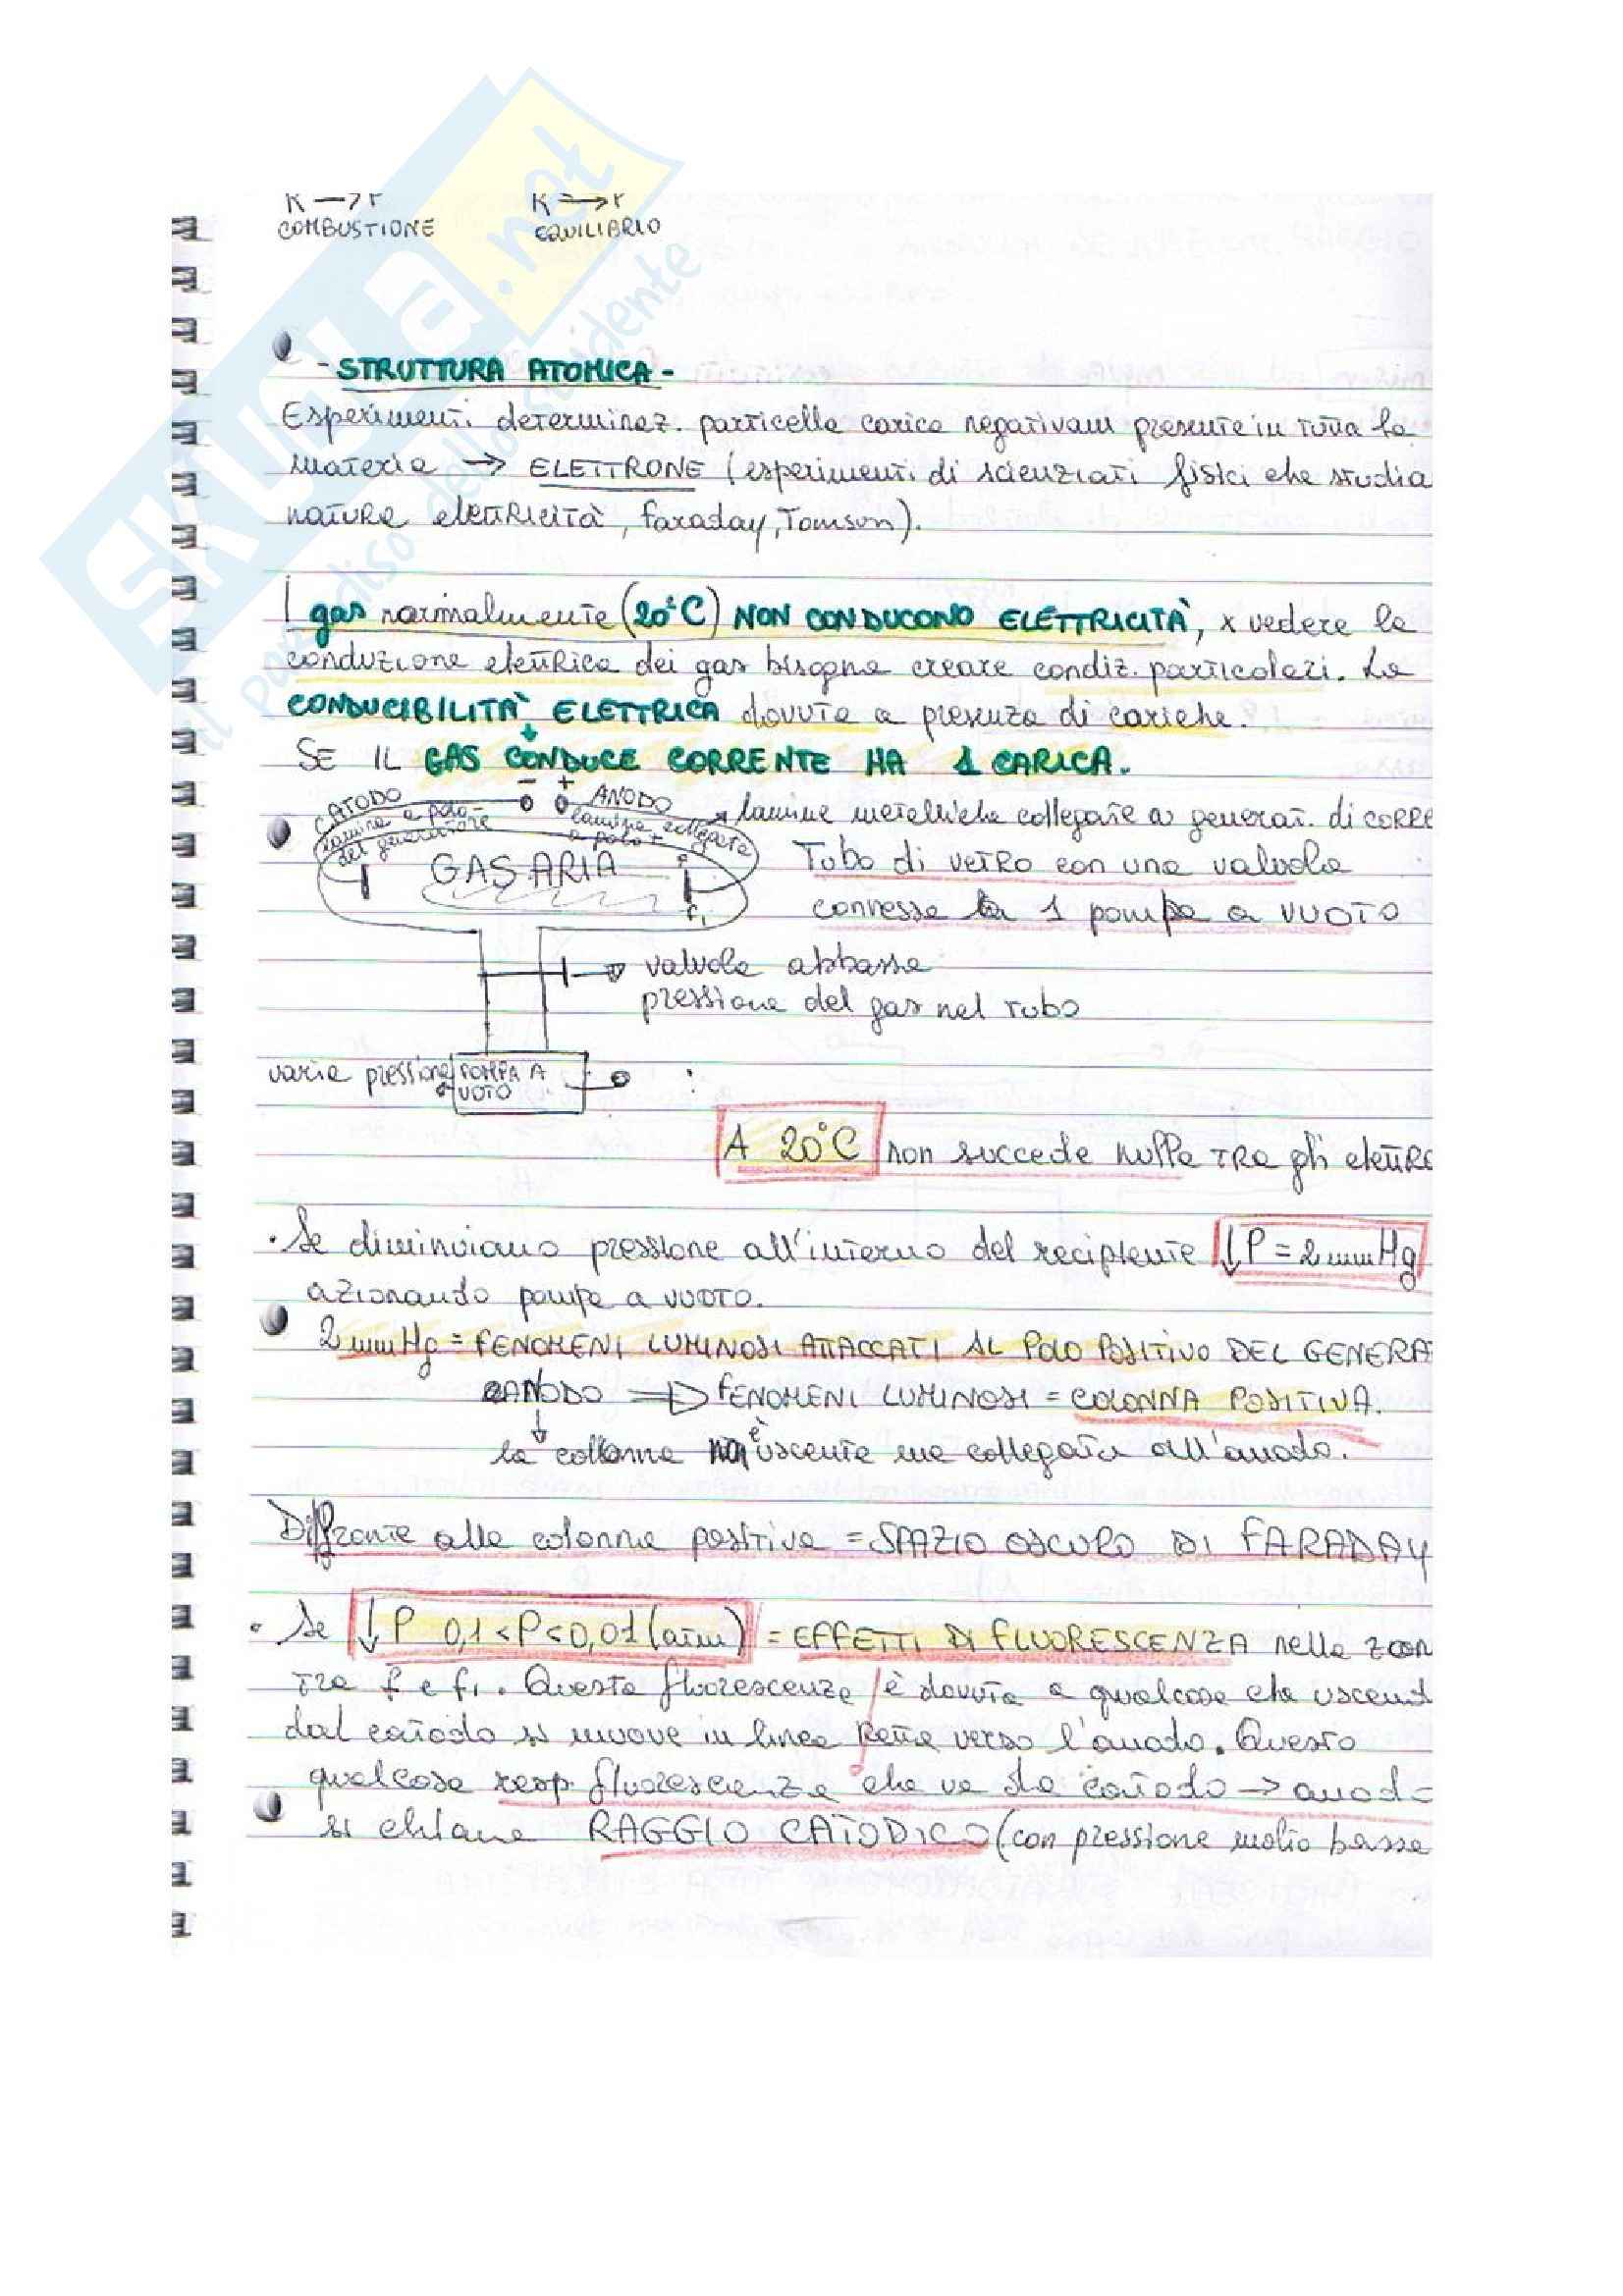 R → P
R ⇒ P
COMBUSTIONE
EQUILIBRIO
- STRUTTURA ATOMICA -
Esperimenti determinaz. particella carica negativam presente in tutta la
materia → ELETTRONE (esperimenti di scienziati fisici che studia
natura elettricità, faraday, Tomson).
I gas normalmente (20°C) NON CONDUCONO ELETTRICITÀ, x vedere la
conduzione elettrica dei gas bisogna creare condiz. particolari. La
CONDUCIBILITÀ ELETTRICA dovuta a presenza di cariche.
SE IL GAS CONDUCE CORRENTE HA 1 CARICA.
- +
CATODO
lamina a polo -
del generatore
ANODO
lamina collegata
a polo +
→ lamine metalliche collegate a generat. di CORRE
GAS ARIA
f
f1
Tubo di vetro con una valvola
connessa a 1 pompa a VUOTO
valvola abbassa
pressione del gas nel tubo
varia pressione
POMPA A
VOTO
A 20°C non succede nulla tra gli elettro
• Se diminuiamo pressione all'interno del recipiente ↓P = 2mmHg
azionando pompa a vuoto.
2mmHg = FENOMENI LUMINOSI ATTACCATI AL POLO POSITIVO DEL GENERA
ANODO ⇒ FENOMENI LUMINOSI = COLONNA POSITIVA.
↓
la colonna è uscente ma collegata all'anodo.
Diffronte alla colonna positiva = SPAZIO OSCURO DI FARADAY
• Se ↓P 0,1 < P < 0,01 (atm) = EFFETTI DI FLUORESCENZA nella zon
tra f e f1. Questa fluorescenza è dovuta a qualcosa che uscend
dal catodo si muove in linea retta verso l'anodo. Questo
qualcosa resp. fluorescienza che va da catodo → anodo
si chiama RAGGIO CATODICO (con pressione molto bassa
SKUOLA.net
il paradiso dello studente